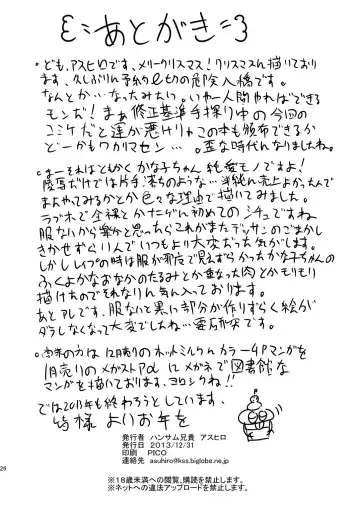 ミニあとがき=3
・ども、アスヒロです、メリークリスマス！クリスマスに描いており
ます、久しぶりに予約〆切の危険入稿です。
なんとか…なったみたい。いやー人間やればできる
モンだ！まぁ修正基準手探り中の今回の
コミケだと運が悪けりゃこの本も頒布できるか
どーかもワカリマセン…。歪な時代になりましたね。
・まーそれはともかくかな子ちゃん純愛モノですよ！
陵辱だけでは片手落ちのような…単純に売上よかったんで
またやってみるかとか色々な理由で描いてみました。
ラブホで全裸とかナーゲに初めてのシチュですね
服ないから楽かと思ったらこれがまたデッサンのごまかし
きかせずらいんでいつもより大変だった気がします。
しかしレイプの時は服が邪魔で見えずらかったかな子ちゃんの
ふくよかなおなかのたるみとか重なった肉とかモリモリ
描けたのでそれなりに気に入っております。
あとアレです、服ないと黒い部分が作りずらく絵が
ダラしなくなって大変でしたね…要研究です。
・の方は12月売りのホットミルクにカラー4Pマンガを
1月売りのメガストアαにメガネで図書館な
マンガを描いております、ヨロシクね!!
では2013年も終わろうとしています、
皆様よいお年を
発行者 ハンサム兄貴 アスヒロ
発行日 2013/12/31
印刷 PICO
連絡先 asuhiro@kss.biglobe.ne.jp
26
※18歳未満への閲覧、購読を禁止します。
※ネットへの違法アップロードを禁止します。